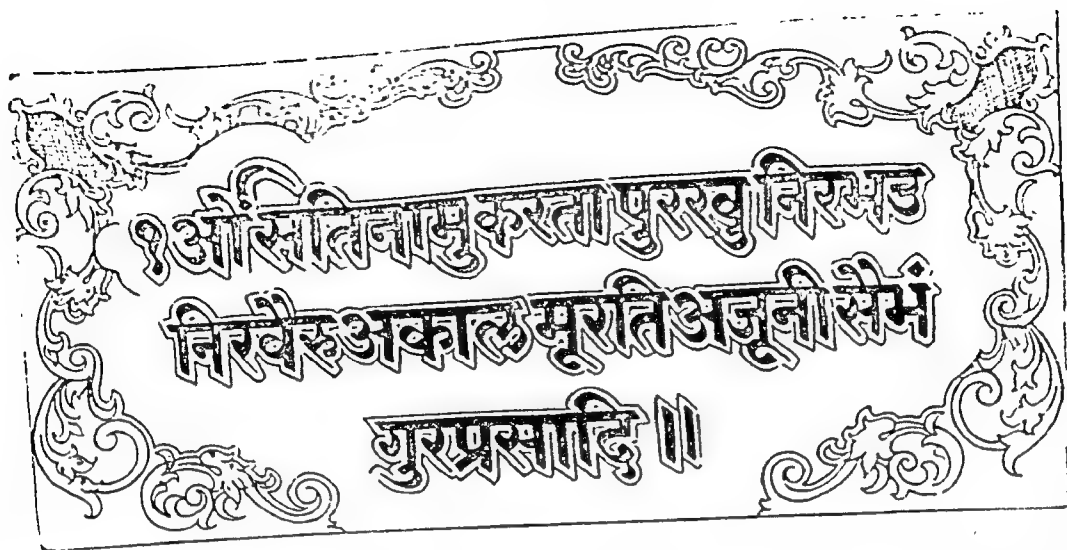 १ओंसतिनामुकरतापुरखुनिरभउ
निरवैरुअकालमूरतिअजूनीसैभं
गुरप्रसादि॥